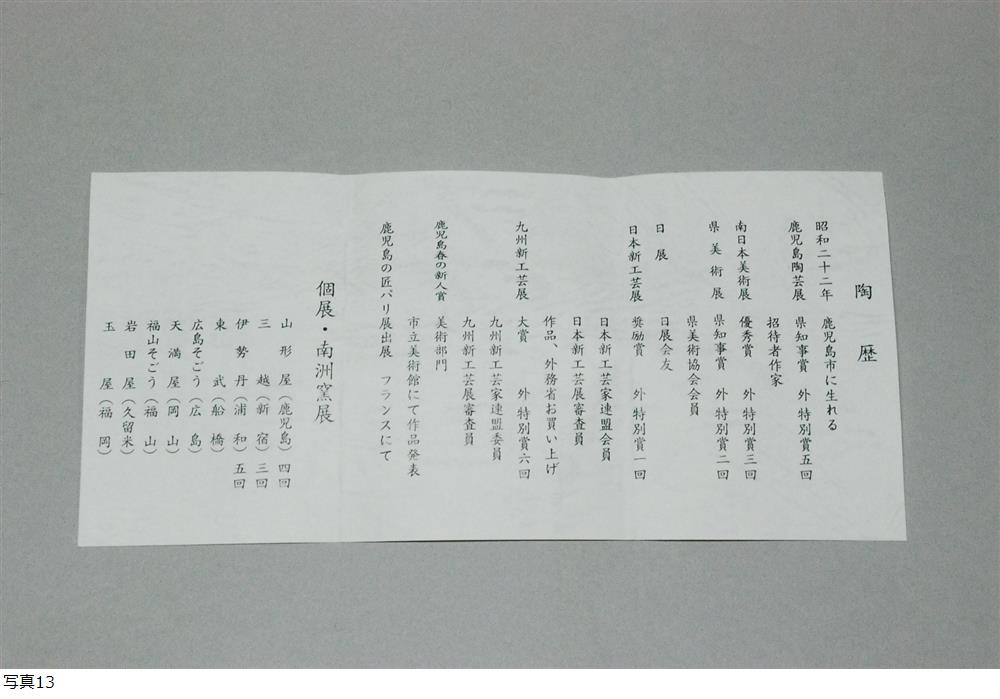 陶歴
昭和二十二年 鹿児島市に生れる
鹿児島陶芸展 県知事賞 外 特別賞五回
招待者作家
南日本美術展 優秀賞 外 特別賞三回
県美術展 県知事賞 外 特別賞二回
県美術協会会員
日展 日展会友
日本新工芸展 奨励賞 外 特別賞一回
日本新工芸家連盟会員
日本新工芸展審査員
作品、外務省お買い上げ
九州新工芸展 大賞 外 特別賞六回
九州新工芸家連盟委員
九州新工芸展審査員
鹿児島春の新人賞 美術部門
市立美術館にて作品発表
鹿児島の匠パリ展出展 フランスにて
個展・南洲窯展
山形屋(鹿児島)四回
三越(新宿)三回
伊勢丹(浦和)五回
東武(船橋)
広島そごう(広島)
天満屋(岡山)
福山そごう(福山)
岩田屋(久留米)
玉屋(福岡)
写真13